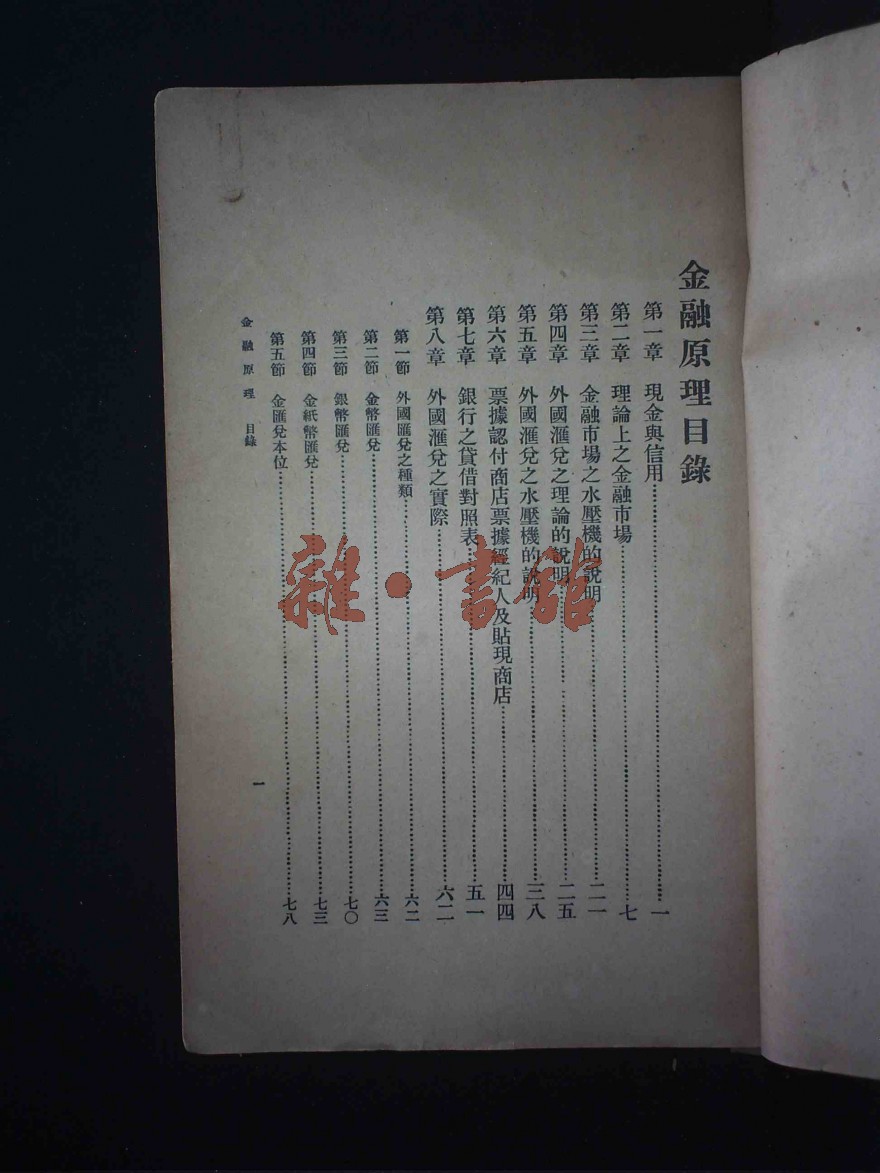 金融原理目錄
第一章　現金與信用……一
第二章　理論上之金融市場……七
第三章　金融市場之水壓機的說明……二一
第四章　外國滙兌之理論的說明……二五
第五章　外國滙兌之水壓機的說明……三八
第六章　票據認付商店票據經紀人及貼現商店……四四
第七章　銀行之貸借對照表……五一
第八章　外國滙兌之實際……六二
第一節　外國匯兌之種類……六二
第二節　金幣匯兌……六三
第三節　銀幣匯兌……七〇
第四節　金紙幣匯兌……七三
第五節　金匯兌本位……七八
金融原理　目錄
一
雜·書館